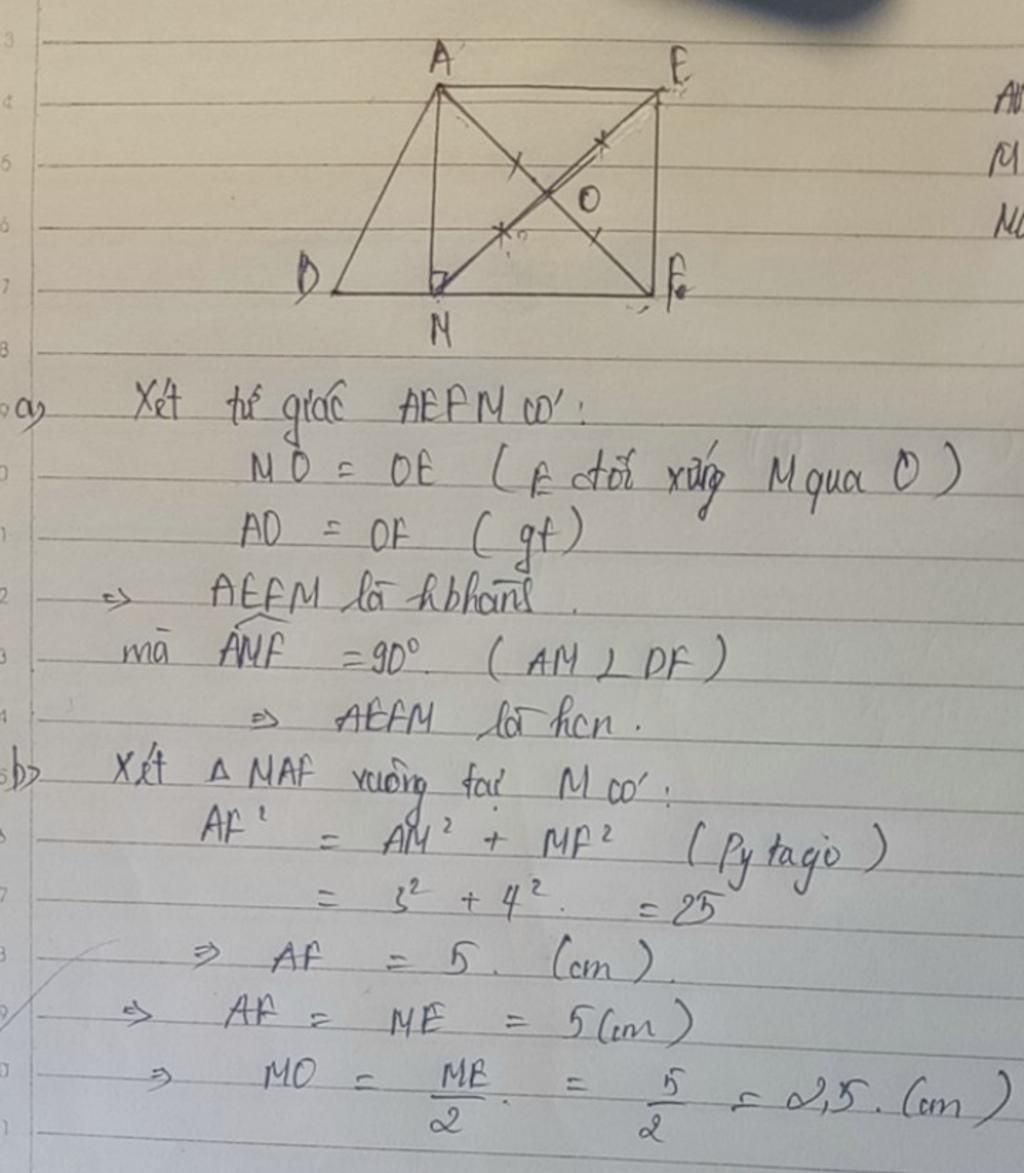 A E
O
D M F
a) Xét tứ giác AEFM có:
MO = OE (E đối xứng M qua O)
AO = OF (gt)
=> AEFM là hbhành.
mà AMF = 90° (AM ⊥ DF)
=> AEFM là hcn.
b) Xét Δ MAF vuông tại M có:
AF² = AM² + MF² (Pytago)
= 3² + 4². = 25
=> AF = 5. (cm).
=> AF = ME = 5 (cm)
=> MO = ME/2 = 5/2 = 2,5. (cm)